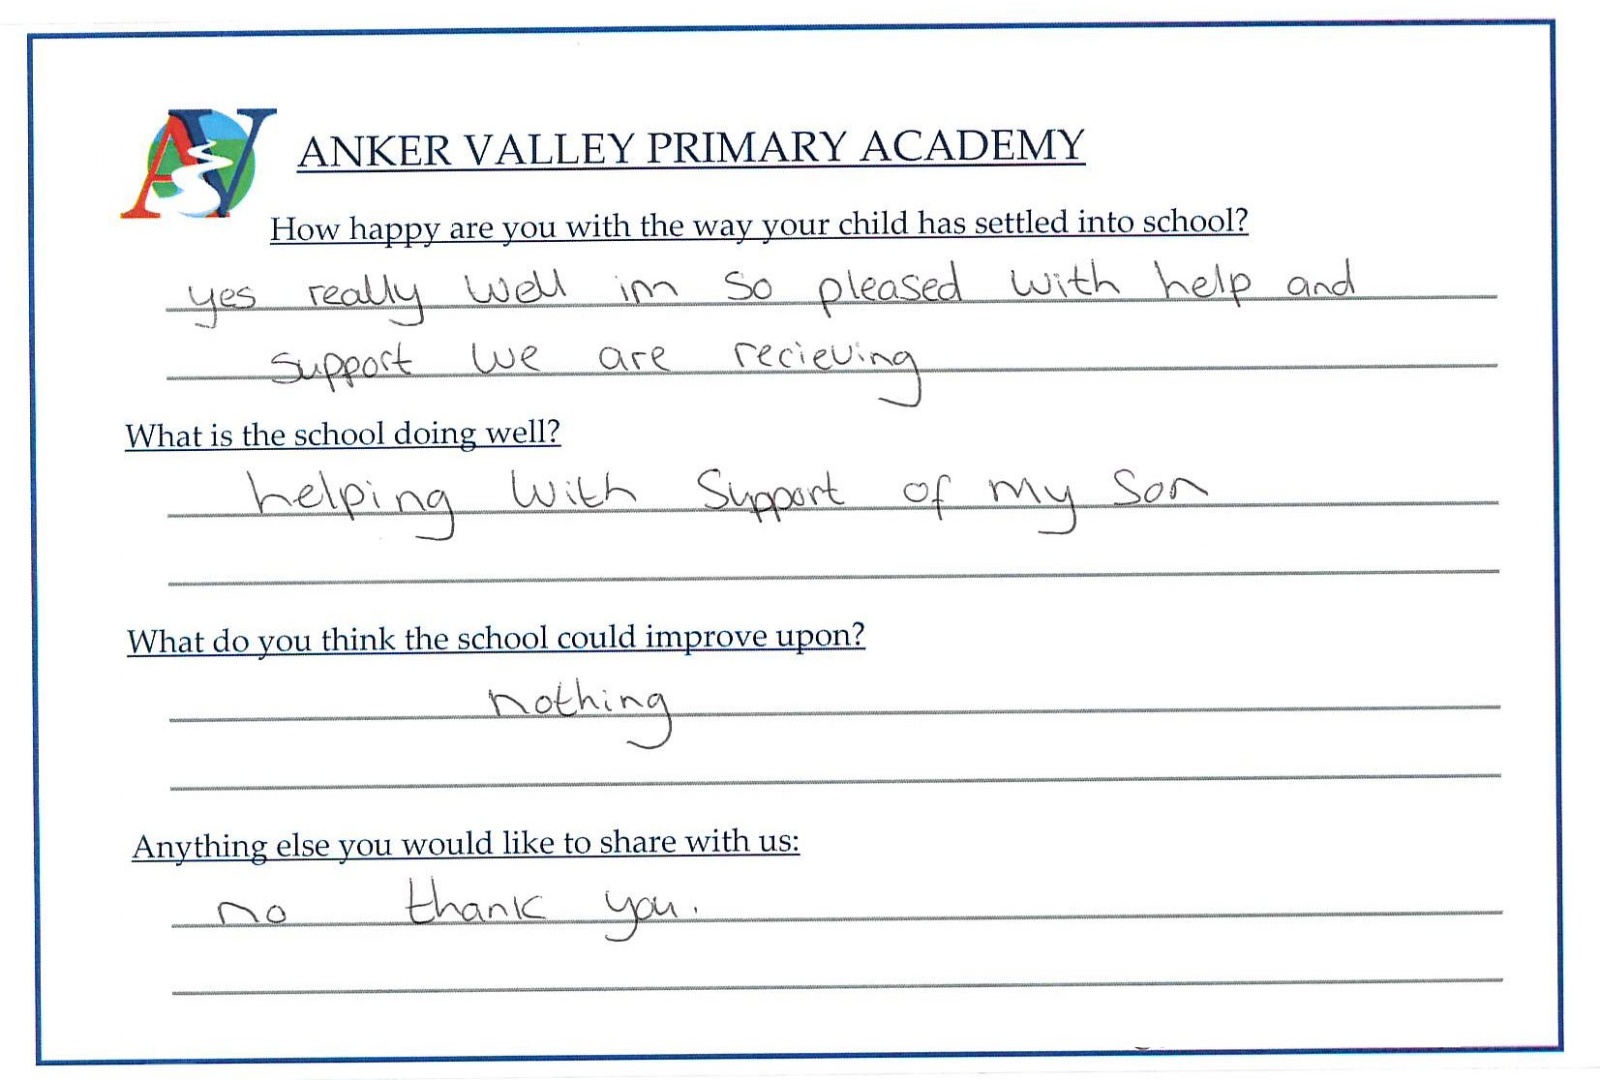 AV
ANKER VALLEY PRIMARY ACADEMY
How happy are you with the way your child has settled into school?
yes really well im so pleased with help and
support we are recieving
What is the school doing well?
helping with Support of my Son
What do you think the school could improve upon?
nothing
Anything else you would like to share with us:
no thank you.